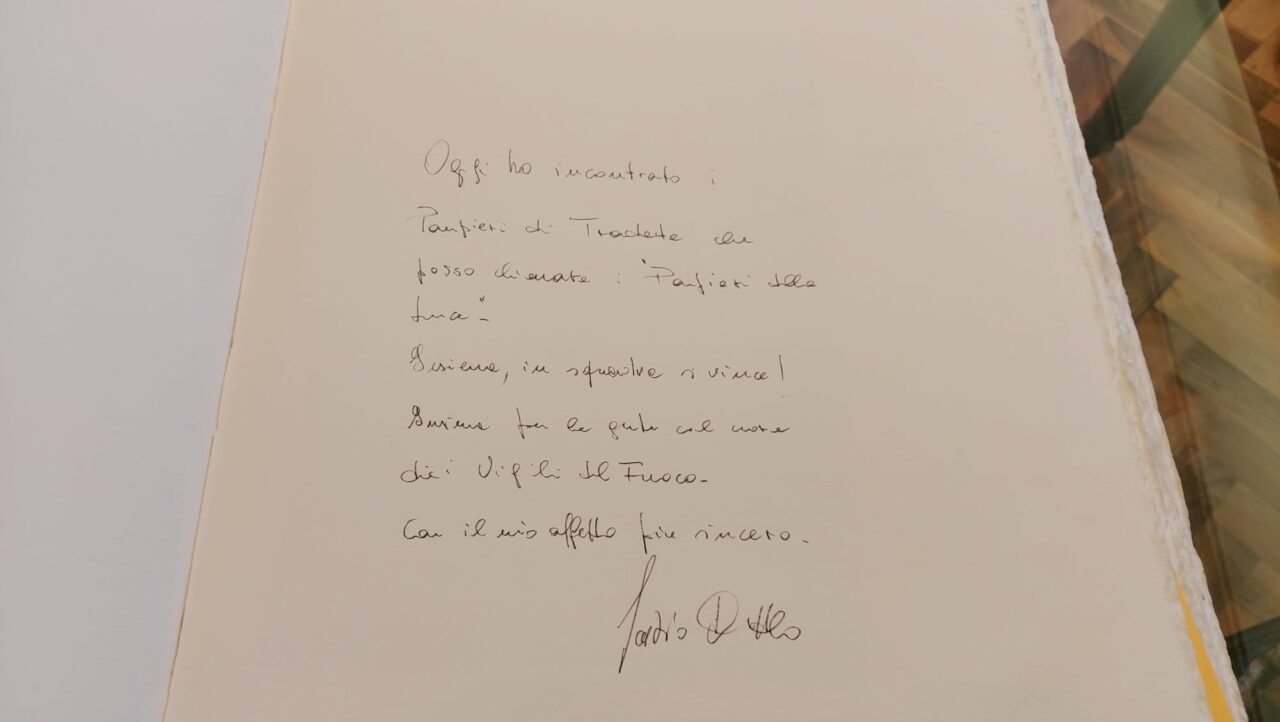 Oggi ho incontrato i
Pompieri di Tradate che
posso chiamare i "Pompieri della
luce"-
Insieme, in squadra si vince!
Insieme per la gente col cuore
dei Vigili del Fuoco-
Con il mio affetto più sincero-